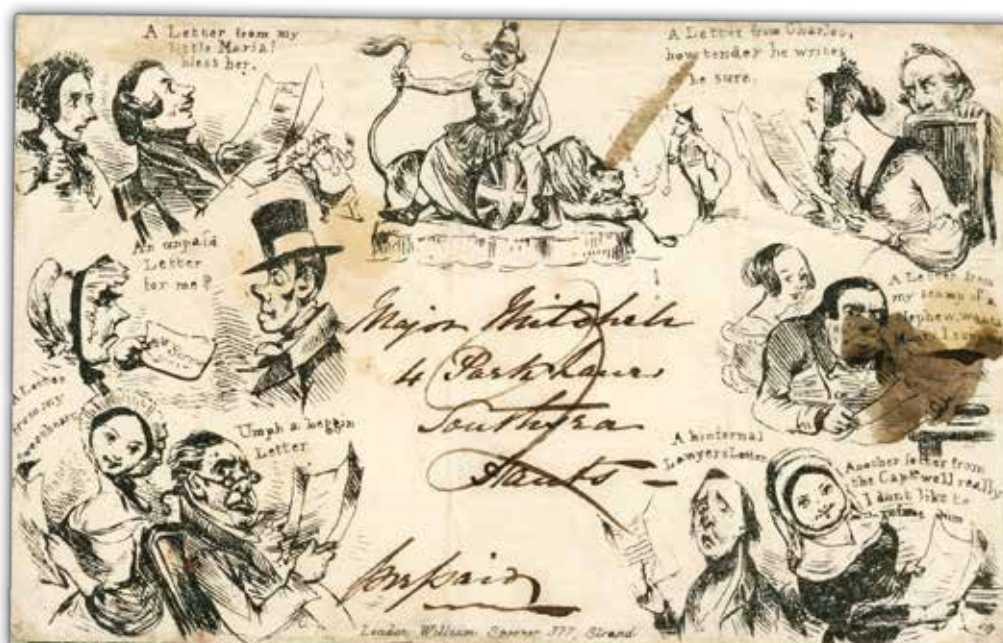 A Letter from my
little Maria!
bless her.
A Letter from Charles,
how tender he writes
be sure.
An unpaid
Letter
for me?
A Letter from
my scamp of a
Nephew, wants
Major Mitchell
4 Park Lane
Southsea
Hants
A Letter
from my
Sweetheart
Umph a beggin
Letter
A hinfernal
Lawyers Letter
Another letter from
the Capt. well really
I dont like to
refuse him
prepaid
London William Spooner 377, Strand